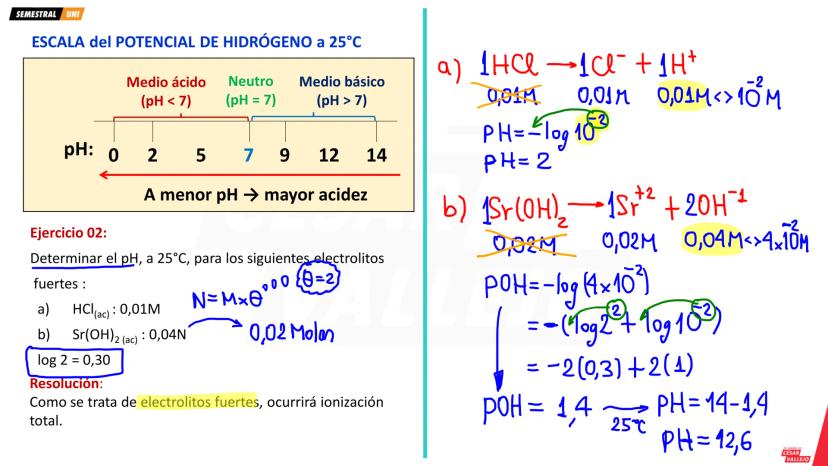 SEMESTRAL UNI
ESCALA del POTENCIAL DE HIDRÓGENO a 25°C
Medio ácido Neutro Medio básico
(pH < 7) (pH = 7) (pH > 7)
pH: 0 2 5 7 9 12 14
A menor pH → mayor acidez
Ejercicio 02:
Determinar el pH, a 25°C, para los siguientes electrolitos
fuertes :
N=M×θ °°° θ=2
a) HCl(ac) : 0,01M
b) Sr(OH)2 (ac) : 0,04N
0,02 Molar
log 2 = 0,30
Resolución:
Como se trata de electrolitos fuertes, ocurrirá ionización
total.
a) 1HCl → 1Cl⁻ + 1H⁺
0,01M 0,01M 0,01M <> 10⁻² M
PH = -log 10⁻²
PH = 2
b) 1Sr(OH)₂ → 1Sr⁺² + 2OH⁻¹
0,02M 0,02M 0,04M <> 4×10⁻²M
POH = -log (4×10⁻²)
= -(log2² + log10⁻²)
= -2(0,3) + 2(1)
POH = 1,4 → PH = 14-1,4
25°C
PH = 12,6
CÉSAR
VALLEJO